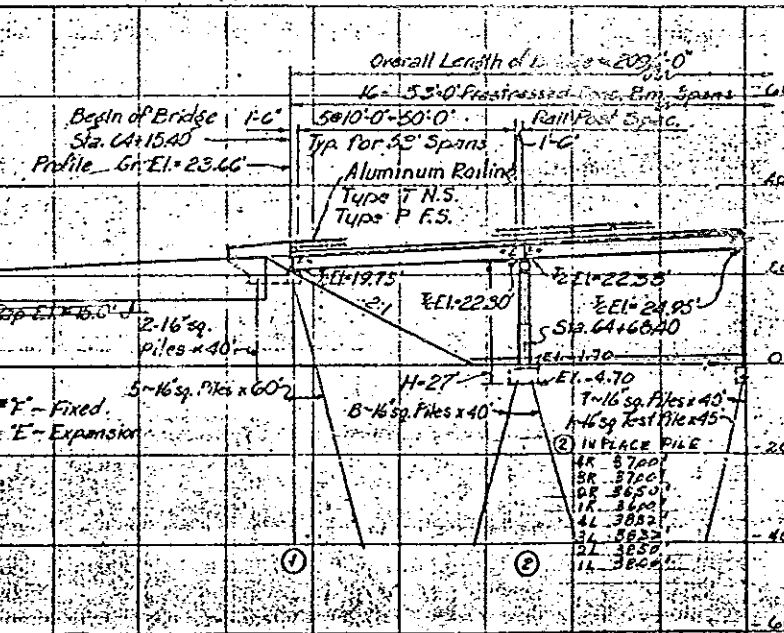 Overall Length of
16 - 53'-0" Prestressed Conc. Bm. Spans
Begin of Bridge
Sta. 64+15.40
Profile Gr. El. = 23.66'
1'-6"
5@10'-0"=50'-0"
Typ. for 53' Spans
Rail Post Spac.
1'-6"
Aluminum Railing
Type T N.S.
Type P F.S.
El=19.75'
El=22.30'
El=22.33'
El=24.95'
2:1
Sta. 64+68.40
2-16" sq.
Piles x 40'
5~16" sq. Piles x 60'
H=27'
El.-1.70
El.-4.70
8~16" sq. Piles x 40'
7~16" sq. Piles x 40'
1~16" sq Test Pile x 45'
"F" - Fixed.
"E" - Expansion
② IN PLACE PILE
4R 37.00'
3R 37.00'
2R 36.50'
1R 36.00'
4L 38.32'
3L 38.32'
2L 38.50'
1L 38.00'
① ②